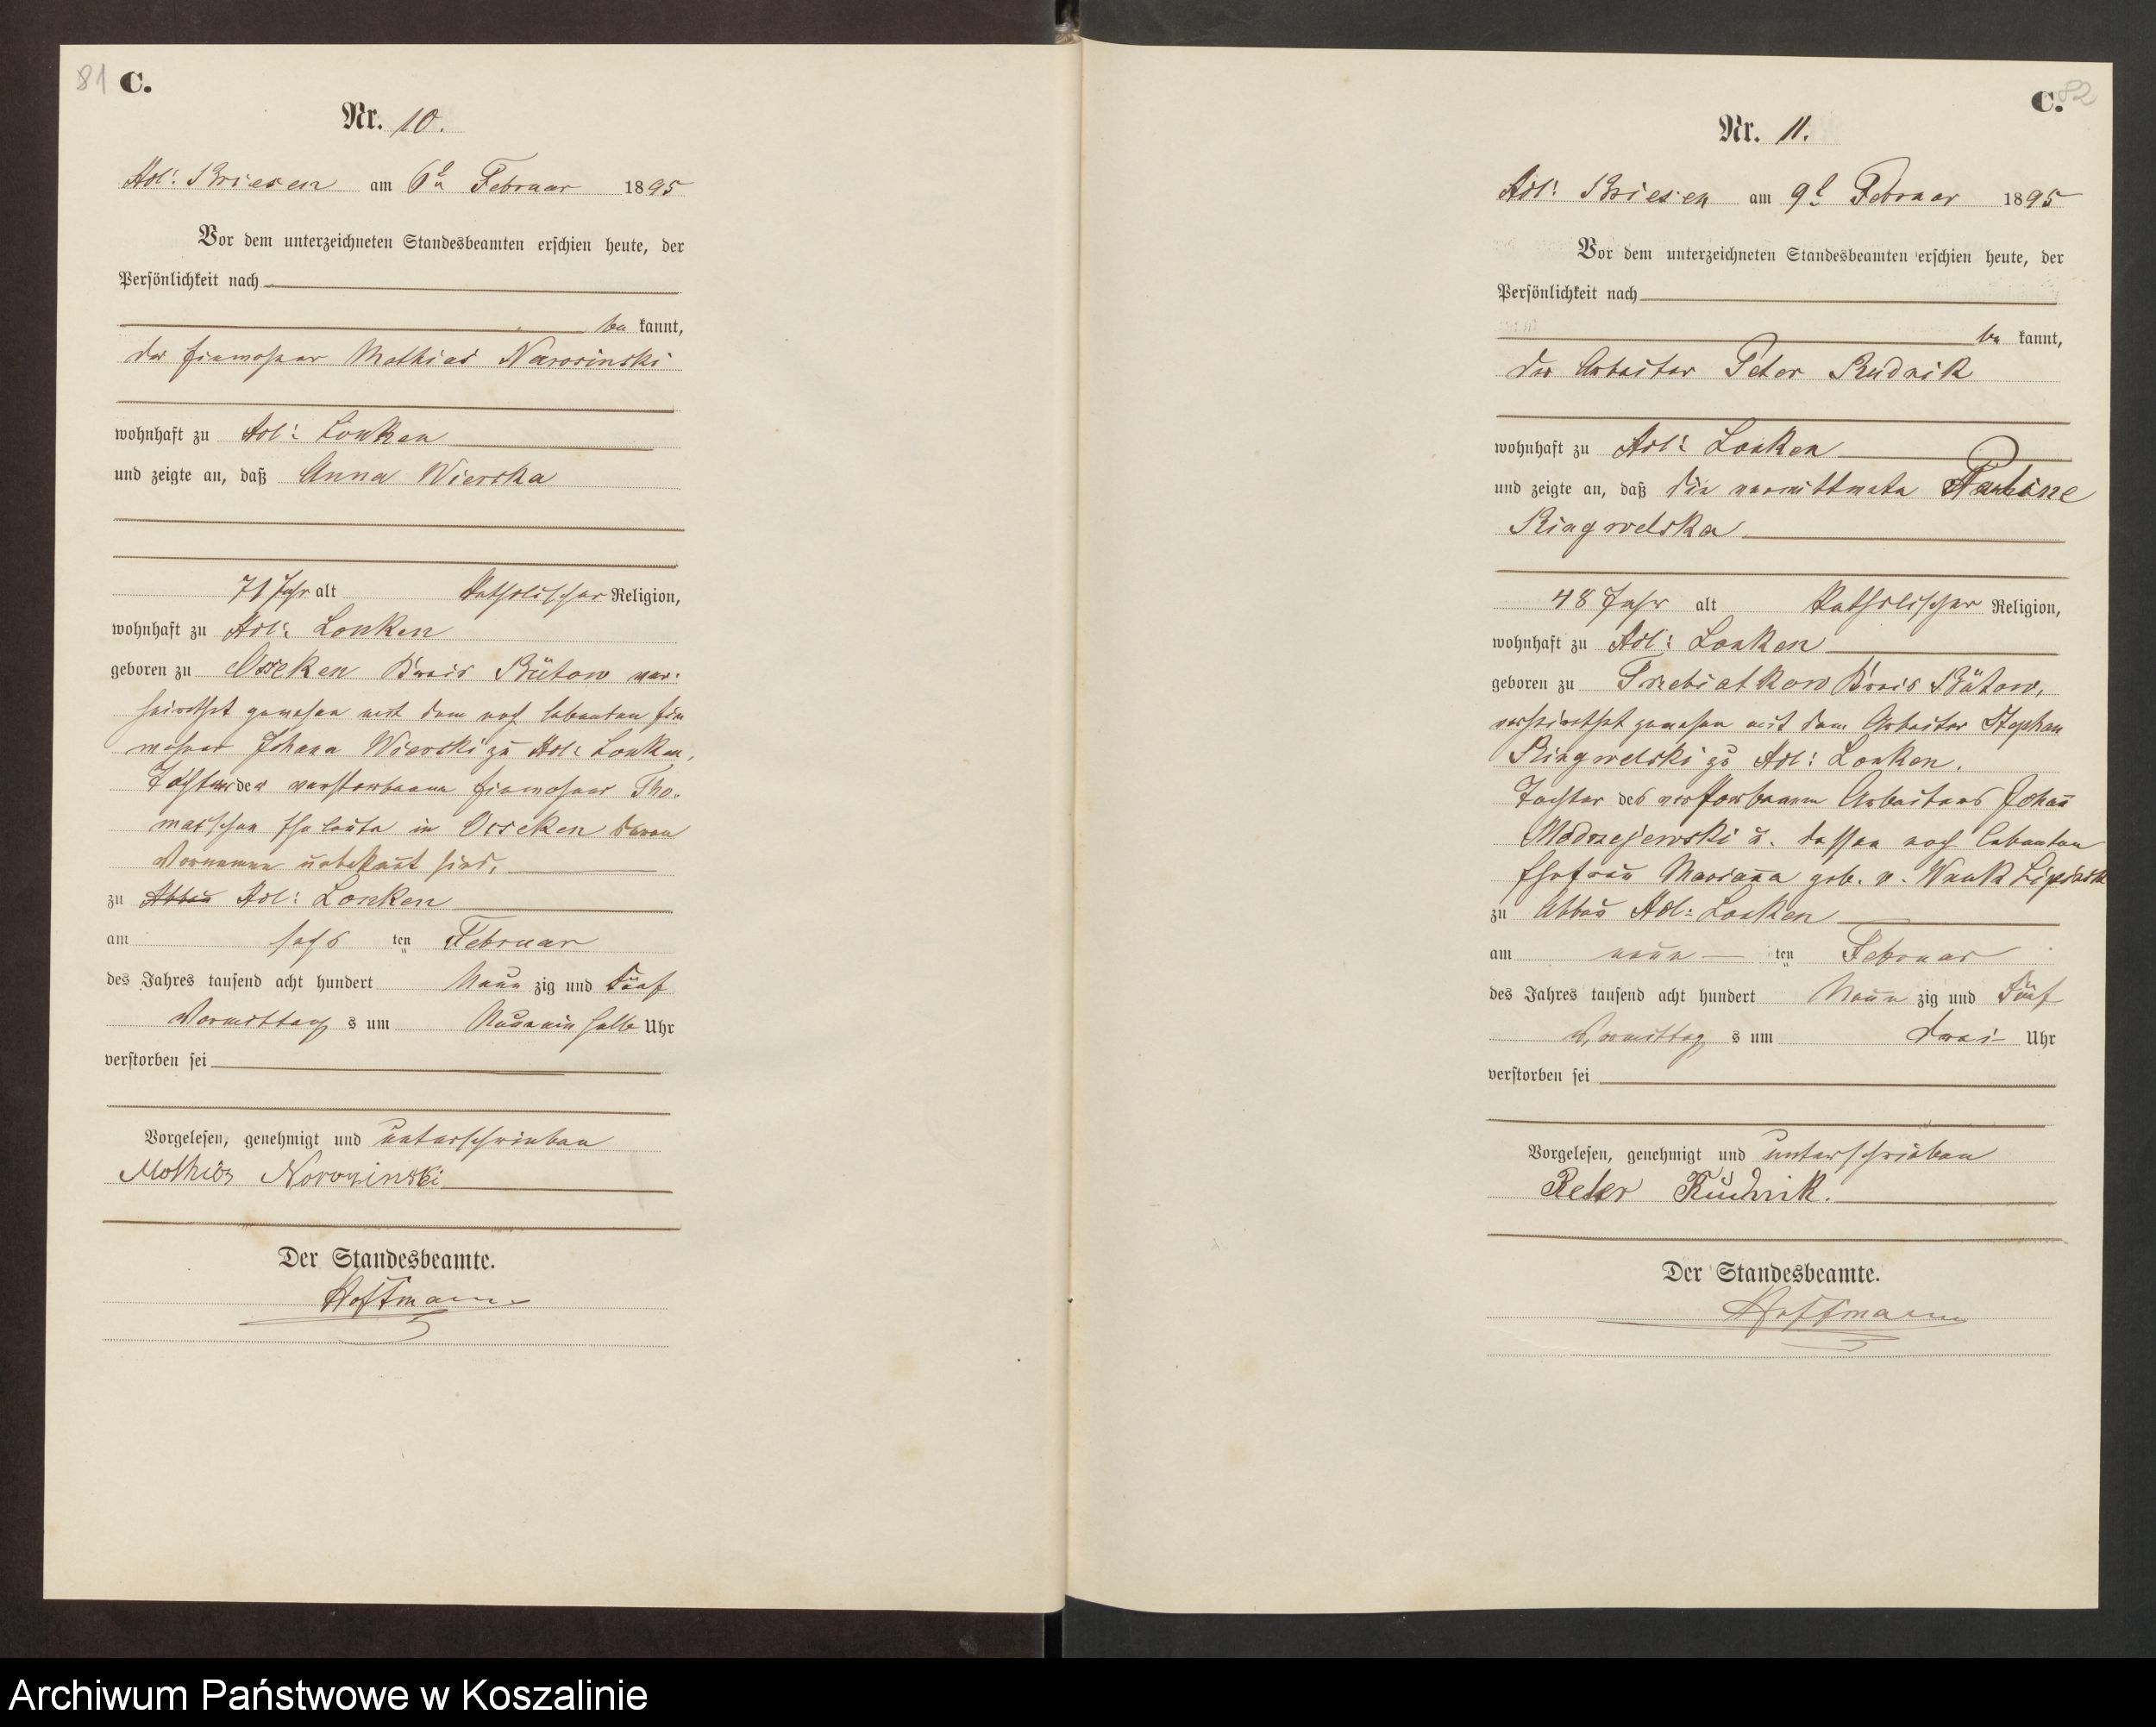 81 C.
Nr. 10.
Adl: Briesen am 6ten Februar 1895
Vor dem unterzeichneten Standesbeamten erschien heute, der
Persönlichkeit nach
be kannt,
der Einwohner Mathias
wohnhaft zu Adl: Lonken
und zeigte an, daß Anna Wierska
71 Jahr alt katholischer Religion,
wohnhaft zu Adl: Lonken
geboren zu Osseken Kreis Bütow ver:
heirathet gewesen mit dem noch lebenden Ein
wohner Johann Wierski zu Adl: Lonken,
Tochter der verstorbenen Einwohner Tho:
mas'schen Eheleute in Osseken deren
Vornamen unbekannt sind,
zu Abbau Adl: Lonken
am sechs ten Februar
des Jahres tausend acht hundert Neun zig und Fünf
Vormittag s um Uhr
verstorben sei
Vorgelesen, genehmigt und unterschrieben
Mathias
Der Standesbeamte.
Hoffmann
C. 82
Nr. 11.
Adl: Briesen am 9t Februar 1895
Vor dem unterzeichneten Standesbeamten erschien heute, der
Persönlichkeit nach
be kannt,
der Arbeiter Peter Rudnik
wohnhaft zu Adl: Lonken
und zeigte an, daß die Pauline
Ringwelska
48 Jahr alt katholischer Religion,
wohnhaft zu Adl: Lonken
geboren zu Trzebiatkow Kreis Bütow,
verheirathet gewesen mit dem Arbeiter Stephan
Ringwelski zu Adl: Lonken.
Tochter des verstorbenen Arbeiters Johann
Modrzejewski u. dessen noch lebenden
Ehefrau Marianna geb. v. Wauk
zu Abbau Adl: Lonken
am neun ten Februar
des Jahres tausend acht hundert Neun zig und Fünf
Vormittag s um drei Uhr
verstorben sei
Vorgelesen, genehmigt und unterschrieben
Peter Rudnik.
Der Standesbeamte.
Hoffmann
Archiwum Państwowe w Koszalinie